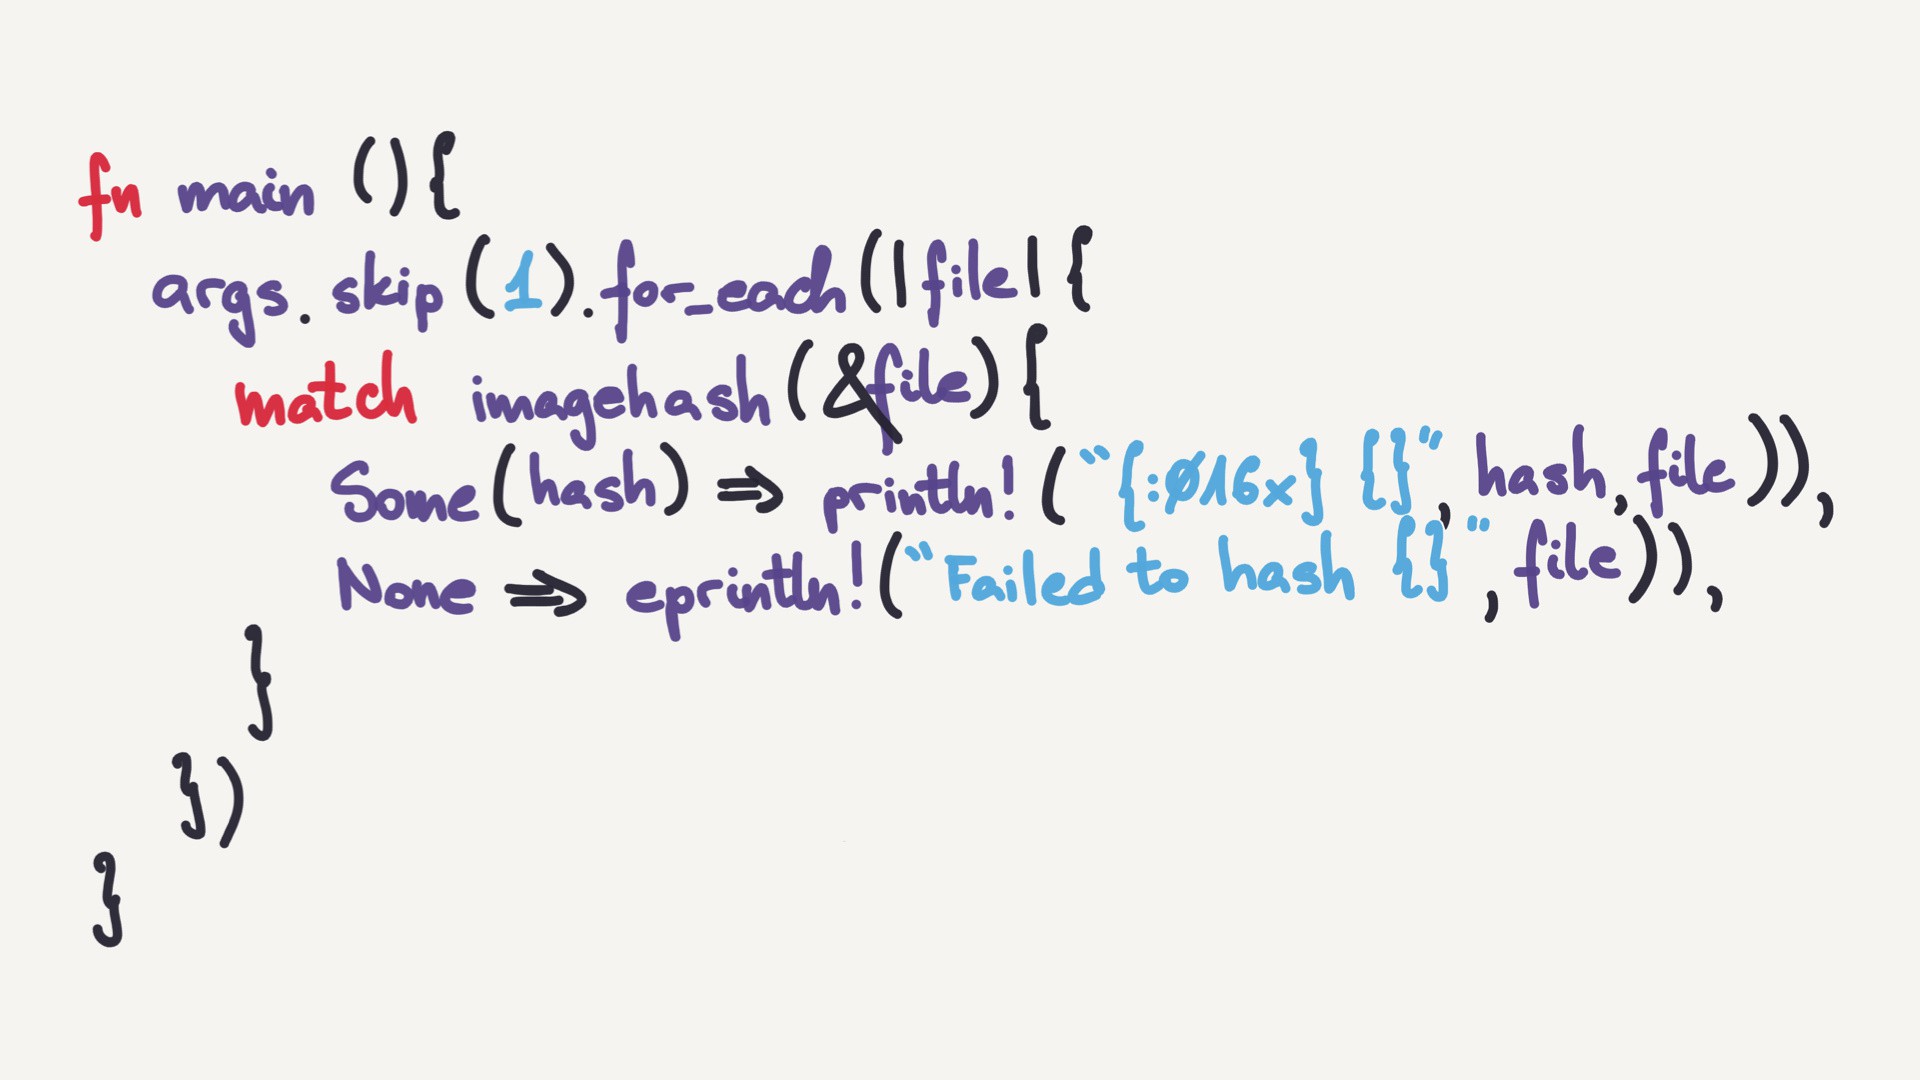 fn main () {
args.skip(1).for_each(|file| {
match imagehash(&file) {
Some(hash) => println!("{:016x} {}", hash, file)),
None => eprintln!("Failed to hash {}", file)),
}
})
}